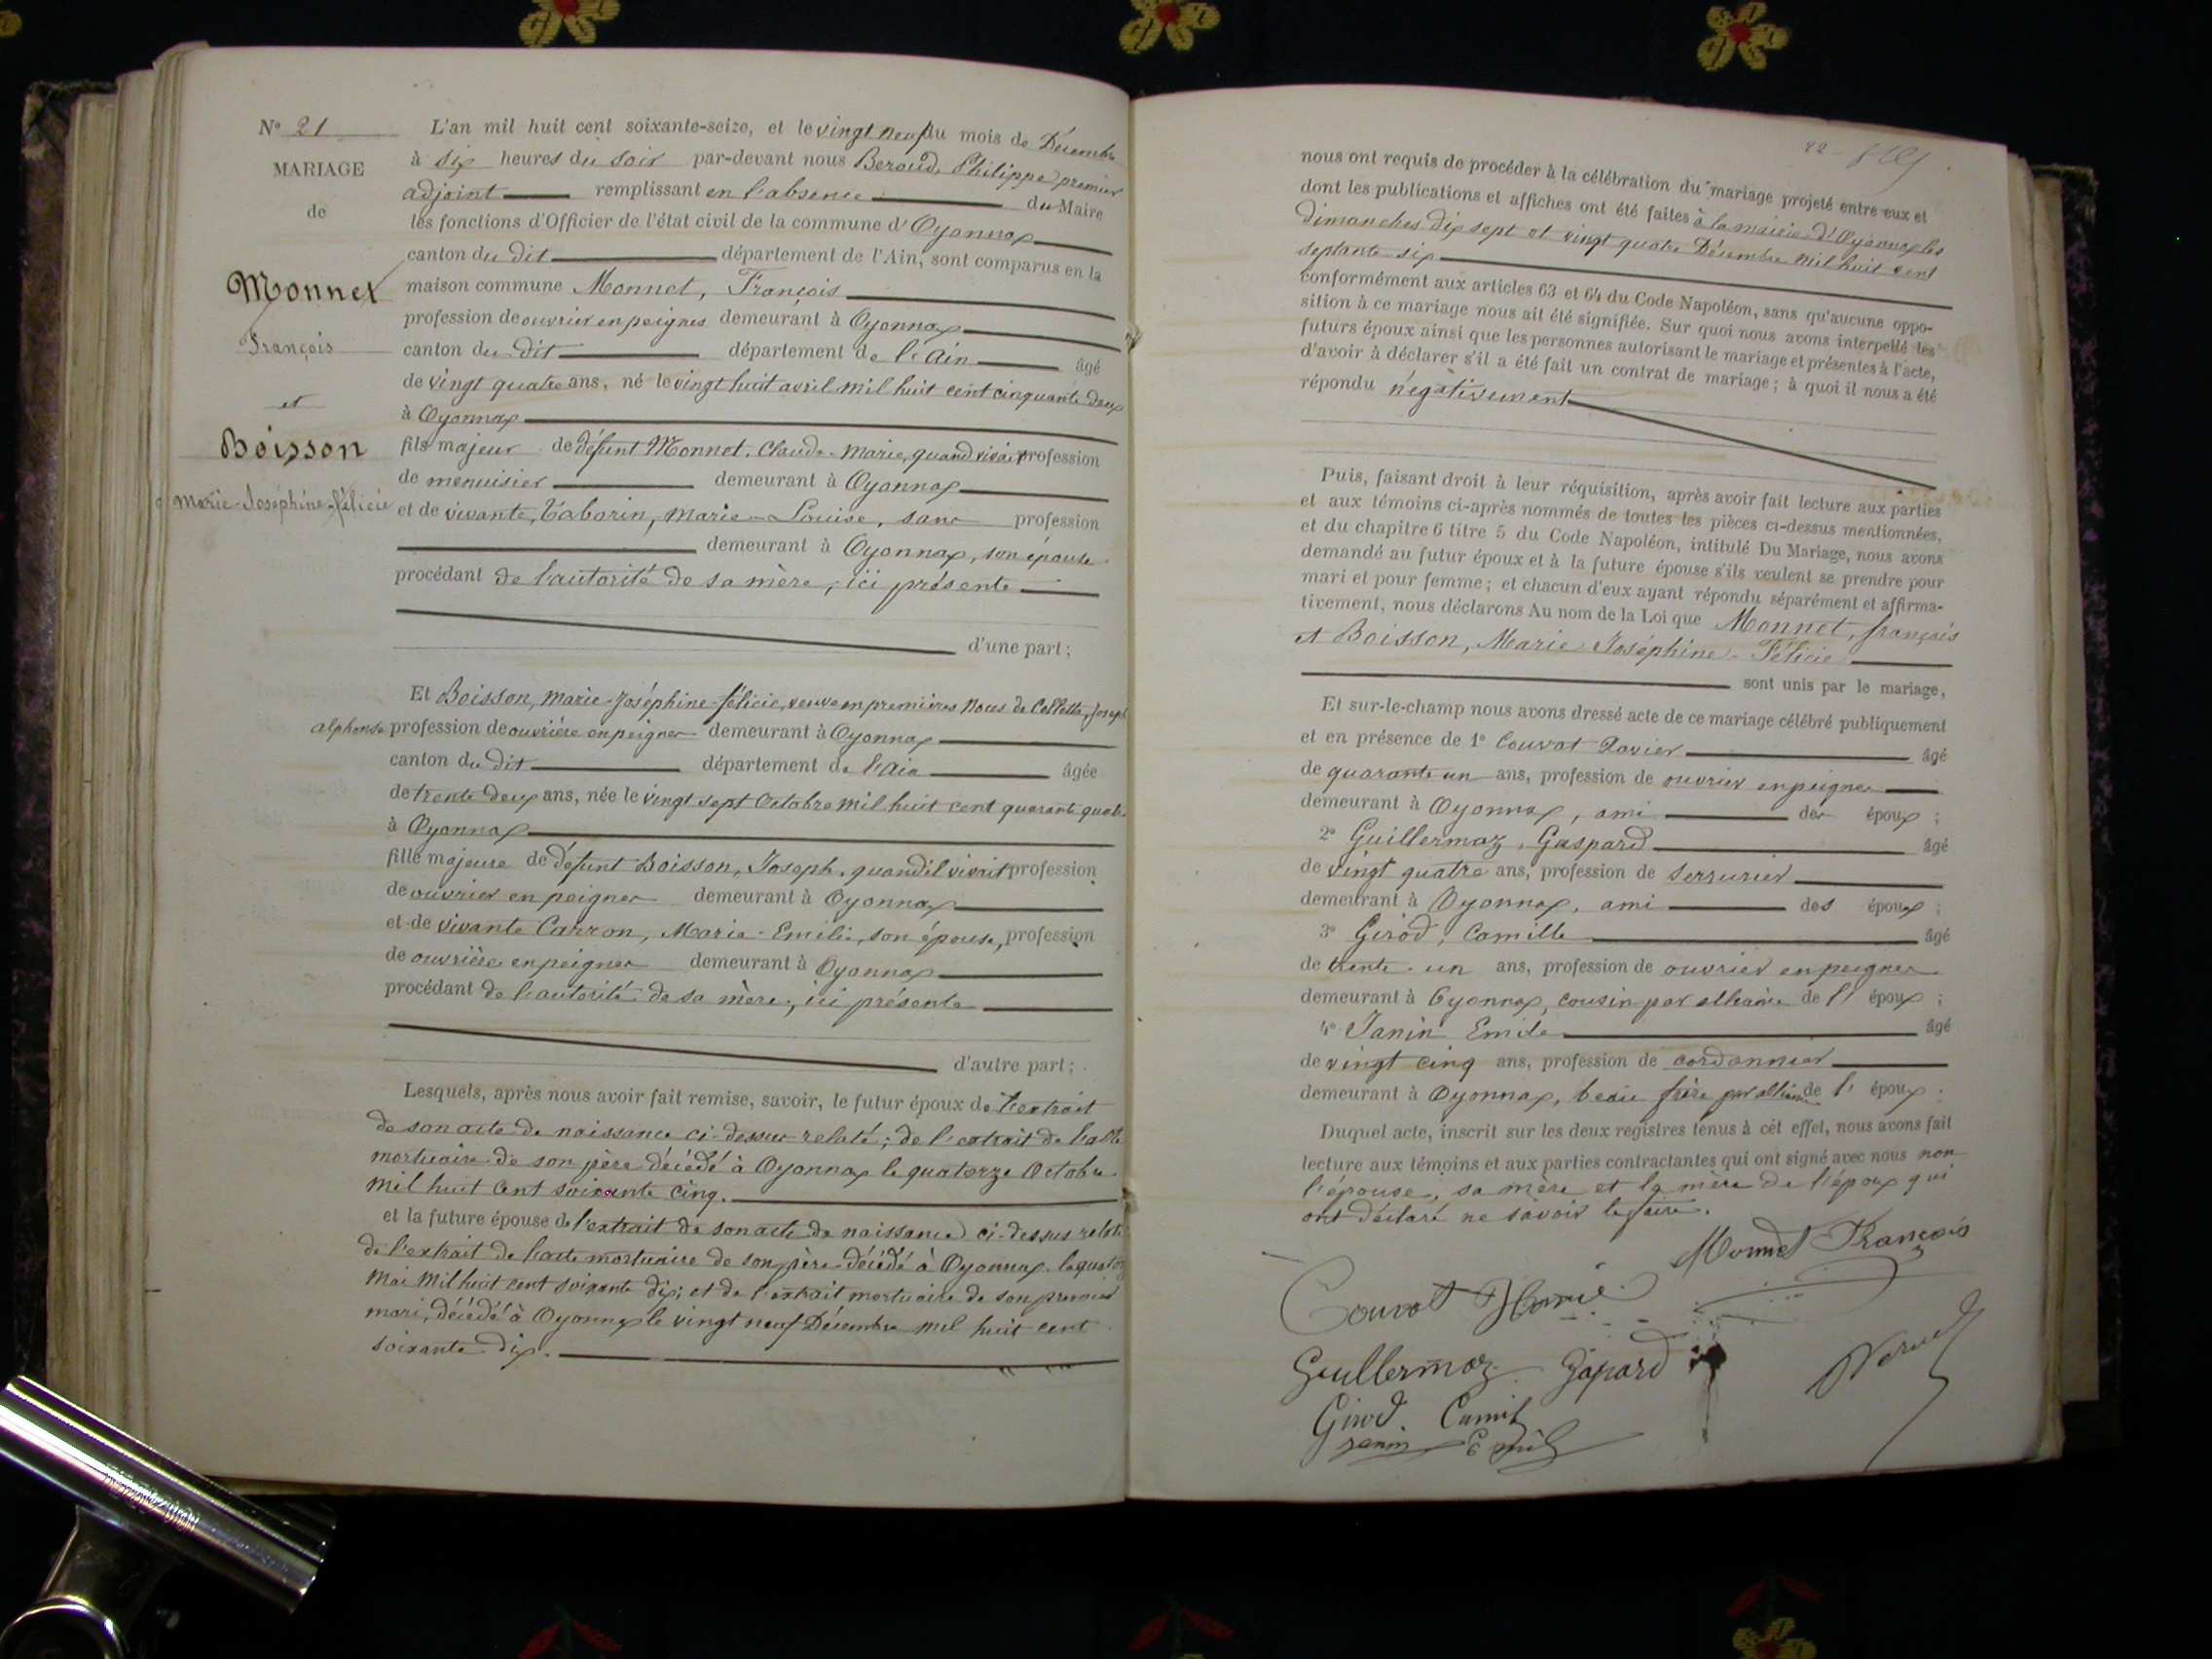 N° 21
MARIAGE
de
Monnet
François
et
Boisson
Marie-Joséphine-félicie
L'an mil huit cent soixante-seize, et le vingt neuf du mois de Décembre
à six heures du soir par-devant nous Beroud, Philippe premier
adjoint remplissant en l'absence du Maire
les fonctions d'Officier de l'état civil de la commune d'Oyonnax
canton du dit département de l'Ain, sont comparus en la
maison commune Monnet, François
profession de ouvrier en peignes demeurant à Oyonnax
canton du dit département de l'Ain âgé
de vingt quatre ans, né le vingt huit avril mil huit cent cinquante deux
à Oyonnax
fils majeur de défunt Monnet, Claude-Marie, quand vivait profession
de menuisier demeurant à Oyonnax
et de vivante, Taborin, Marie-Louise, sans profession
demeurant à Oyonnax, son épouse
procédant de l'autorité de sa mère, ici présente
d'une part;
Et Boisson, Marie-Joséphine-félicie, veuve en premières noces de Collette, Joseph
alphonse profession de ouvrière en peignes demeurant à Oyonnax
canton du dit département de l'Ain âgée
de trente deux ans, née le vingt sept Octobre mil huit cent quarante quatre
à Oyonnax
fille majeure de défunt Boisson, Joseph, quand il vivait profession
de ouvrier en peignes demeurant à Oyonnax
et de vivante Carron, Marie-Emilie, son épouse, profession
de ouvrière en peignes demeurant à Oyonnax
procédant de l'autorité de sa mère, ici présente
d'autre part;
Lesquels, après nous avoir fait remise, savoir, le futur époux de l'extrait
de son acte de naissance ci-dessus relaté; de l'extrait de l'acte
mortuaire de son père décédé à Oyonnax le quatorze Octobre
mil huit cent soixante cinq.
et la future épouse de l'extrait de son acte de naissance ci-dessus relaté
de l'extrait de l'acte mortuaire de son père décédé à Oyonnax le quatorze
Mai mil huit cent soixante dix; et de l'extrait mortuaire de son premier
mari, décédé à Oyonnax le vingt neuf Décembre mil huit cent
soixante dix.
22
nous ont requis de procéder à la célébration du mariage projeté entre eux et
dont les publications et affiches ont été faites à la mairie d'Oyonnax les
dimanches dix sept et vingt quatre Décembre mil huit cent
septante six
conformément aux articles 63 et 64 du Code Napoléon, sans qu'aucune oppo-
sition à ce mariage nous ait été signifiée. Sur quoi nous avons interpellé les
futurs époux ainsi que les personnes autorisant le mariage et présentes à l'acte,
d'avoir à déclarer s'il a été fait un contrat de mariage; à quoi il nous a été
répondu négativement
Puis, faisant droit à leur réquisition, après avoir fait lecture aux parties
et aux témoins ci-après nommés de toutes les pièces ci-dessus mentionnées,
et du chapitre 6 titre 5 du Code Napoléon, intitulé Du Mariage, nous avons
demandé au futur époux et à la future épouse s'ils veulent se prendre pour
mari et pour femme; et chacun d'eux ayant répondu séparément et affirma-
tivement, nous déclarons Au nom de la Loi que Monnet, françois
et Boisson, Marie Joséphine-Félicie
sont unis par le mariage,
Et sur-le-champ nous avons dressé acte de ce mariage célébré publiquement
et en présence de 1° Couvat Xavier âgé
de quarante un ans, profession de ouvrier en peignes
demeurant à Oyonnax, ami des époux;
2° Guillermoz, Gaspard âgé
de vingt quatre ans, profession de serrurier
demeurant à Oyonnax, ami des époux;
3° Girod, Camille âgé
de trente-un ans, profession de ouvrier en peignes
demeurant à Oyonnax, cousin par alliance de l' époux;
4° Janin Emile âgé
de vingt cinq ans, profession de cordonnier
demeurant à Oyonnax, beau frère par alliance de l' époux.
Duquel acte, inscrit sur les deux registres tenus à cet effet, nous avons fait
lecture aux témoins et aux parties contractantes qui ont signé avec nous non
l'épouse, sa mère et la mère de l'époux qui
ont déclaré ne savoir le faire.
Monnet François
Couvat
Guillermoz Gapard
Girod Camil
Janin Emil